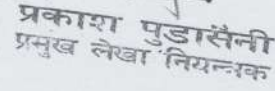 प्रकाश पुडासैनी
प्रमुख लेखा नियन्त्रक